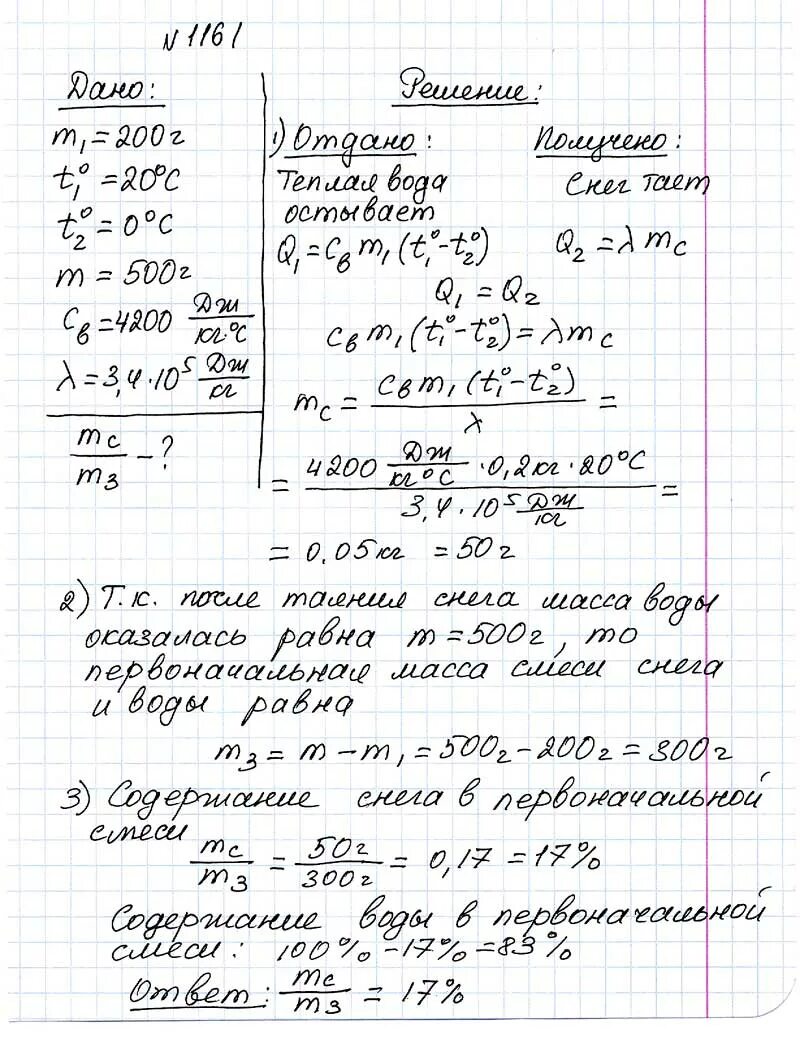 N 1161
Дано:
m₁ = 200г
t₁° = 20°С
t₂° = 0°С
m = 500г
Cв = 4200 Дж/кг·°С
λ = 3,4·10⁵ Дж/кг
mс/m₃ - ?
Решение:
1) Отдано:
Теплая вода
остывает
Q₁ = Cв m₁ (t₁° - t₂°)
Получено:
Снег тает
Q₂ = λ mс
Q₁ = Q₂
Cв m₁ (t₁° - t₂°) = λ mс
mс = Cв m₁ (t₁° - t₂°)/λ =
= 4200 Дж/кг°С · 0,2кг · 20°С / 3,4 · 10⁵ Дж/кг =
= 0,05кг = 50г
2) Т.к. после таяния снега масса воды
оказалась равна m = 500г, то
первоначальная масса смеси снега
и воды равна
m₃ = m - m₁ = 500г - 200г = 300г
3) Содержание снега в первоначальной
смеси
mс/m₃ = 50г/300г = 0,17 = 17%
Содержание воды в первоначальной
смеси: 100% - 17% = 83%
Ответ: mс/m₃ = 17%